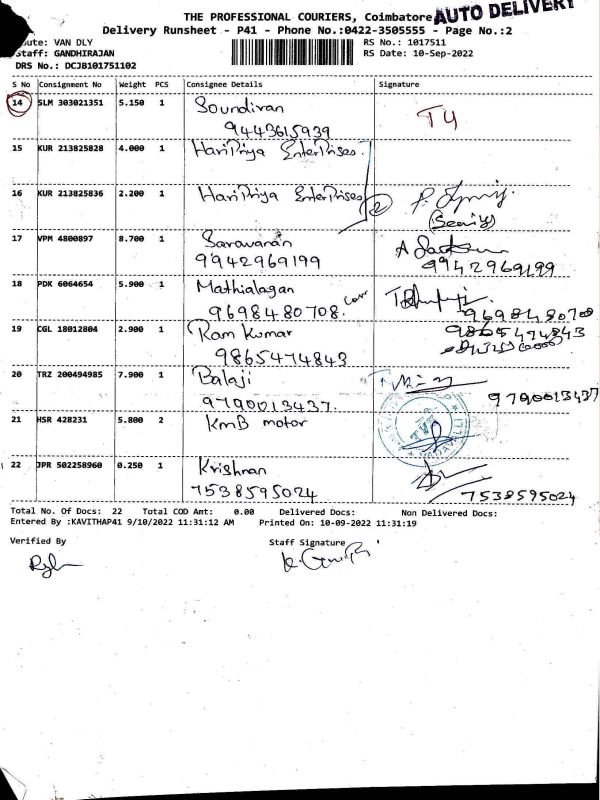 THE PROFESSIONAL COURIERS, Coimbatore
AUTO DELIVERY
Delivery Runsheet - P41 - Phone No.:0422-3505555 - Page No.:2
oute: VAN DLY
RS No.: 1017511
Staff: GANDHIRAJAN
RS Date: 10-Sep-2022
DRS No.: DCJB101751102
S No Consignment No Weight PCS Consignee Details Signature
14 SLM 303021351 5.150 1 Soundiran T4
9443615939
15 KUR 213825828 4.000 1 HariPriya EnterPrises.
16 KUR 213825836 2.200 1 HariPriya EnterPrises 2
17 VPM 4800897 8.700 1 Saravanan
9942969199 9942969199
18 PDK 6064654 5.900 1 Mathialagan
9698480708. 9698480708
19 CGL 18012804 2.900 1 Ram Kumar 9865474843
9865474843
20 TRZ 200494985 7.900 1 Balaji
9790013437. 9790013437
21 HSR 428231 5.800 2 KMB motor
22 JPR 502258960 0.250 1 Krishnan
7538595024 7538595024
Total No. Of Docs: 22 Total COD Amt: 0.00 Delivered Docs: Non Delivered Docs:
Entered By :KAVITHAP41 9/10/2022 11:31:12 AM Printed On: 10-09-2022 11:31:19
Verified By Staff Signature